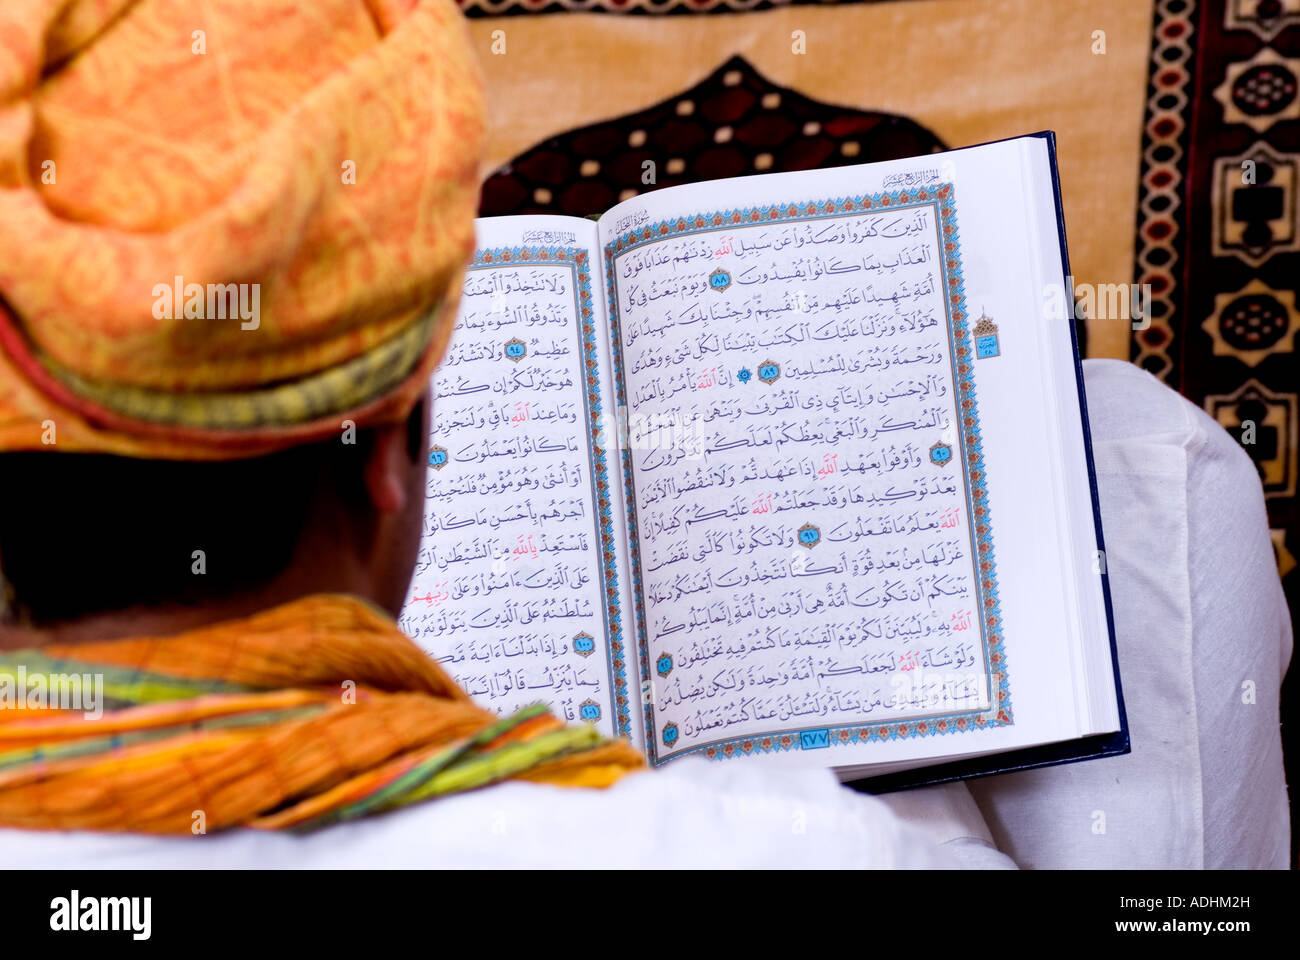 الجزء الرابع عشر
سورة النحل
الَّذِينَ كَفَرُوا وَصَدُّوا عَن سَبِيلِ اللَّهِ زِدْنَاهُمْ عَذَابًا فَوْقَ
الْعَذَابِ بِمَا كَانُوا يُفْسِدُونَ ٨٨ وَيَوْمَ نَبْعَثُ فِي كُلِّ
أُمَّةٍ شَهِيدًا عَلَيْهِم مِّنْ أَنفُسِهِمْ وَجِئْنَا بِكَ شَهِيدًا عَلَىٰ
هَٰؤُلَاءِ وَنَزَّلْنَا عَلَيْكَ الْكِتَابَ تِبْيَانًا لِّكُلِّ شَيْءٍ وَهُدًى
وَرَحْمَةً وَبُشْرَىٰ لِلْمُسْلِمِينَ ٨٩ إِنَّ اللَّهَ يَأْمُرُ بِالْعَدْلِ
وَالْإِحْسَانِ وَإِيتَاءِ ذِي الْقُرْبَىٰ وَيَنْهَىٰ عَنِ الْفَحْشَاءِ
وَالْمُنكَرِ وَالْبَغْيِ يَعِظُكُمْ لَعَلَّكُمْ تَذَكَّرُونَ ٩٠
وَأَوْفُوا بِعَهْدِ اللَّهِ إِذَا عَاهَدتُّمْ وَلَا تَنقُضُوا الْأَيْمَانَ
بَعْدَ تَوْكِيدِهَا وَقَدْ جَعَلْتُمُ اللَّهَ عَلَيْكُمْ كَفِيلًا إِنَّ
اللَّهَ يَعْلَمُ مَا تَفْعَلُونَ ٩١ وَلَا تَكُونُوا كَالَّتِي نَقَضَتْ
غَزْلَهَا مِن بَعْدِ قُوَّةٍ أَنكَاثًا تَتَّخِذُونَ أَيْمَانَكُمْ دَخَلًا
بَيْنَكُمْ أَن تَكُونَ أُمَّةٌ هِيَ أَرْبَىٰ مِنْ أُمَّةٍ إِنَّمَا يَبْلُوكُمُ
اللَّهُ بِهِ وَلَيُبَيِّنَنَّ لَكُمْ يَوْمَ الْقِيَامَةِ مَا كُنتُمْ فِيهِ تَخْتَلِفُونَ ٩٢
وَلَوْ شَاءَ اللَّهُ لَجَعَلَكُمْ أُمَّةً وَاحِدَةً وَلَٰكِن يُضِلُّ مَن
يَشَاءُ وَيَهْدِي مَن يَشَاءُ وَلَتُسْأَلُنَّ عَمَّا كُنتُمْ تَعْمَلُونَ ٩٣
٢٧٧
الجزء الرابع عشر
وَلَا تَتَّخِذُوا أَيْمَانَ
وَتَذُوقُوا السُّوءَ بِمَا
عَظِيمٌ ٩٤ وَلَا تَشْتَرُوا
هُوَ خَيْرٌ لَّكُمْ إِن كُنتُمْ
وَمَا عِندَ اللَّهِ بَاقٍ وَلَنَجْزِيَنَّ
مَا كَانُوا يَعْمَلُونَ ٩٦
أَوْ أُنثَىٰ وَهُوَ مُؤْمِنٌ فَلَنُحْيِيَنَّ
أَجْرَهُم بِأَحْسَنِ مَا كَانُوا
فَاسْتَعِذْ بِاللَّهِ مِنَ الشَّيْطَانِ
عَلَى الَّذِينَ آمَنُوا وَعَلَىٰ رَبِّهِمْ
سُلْطَانُهُ عَلَى الَّذِينَ يَتَوَلَّوْنَهُ
١٠٠ وَإِذَا بَدَّلْنَا آيَةً
بِمَا يُنَزِّلُ قَالُوا إِنَّمَا
١٠١
alamy
a alamy
Image ID: ADHM2H
www.alamy.com